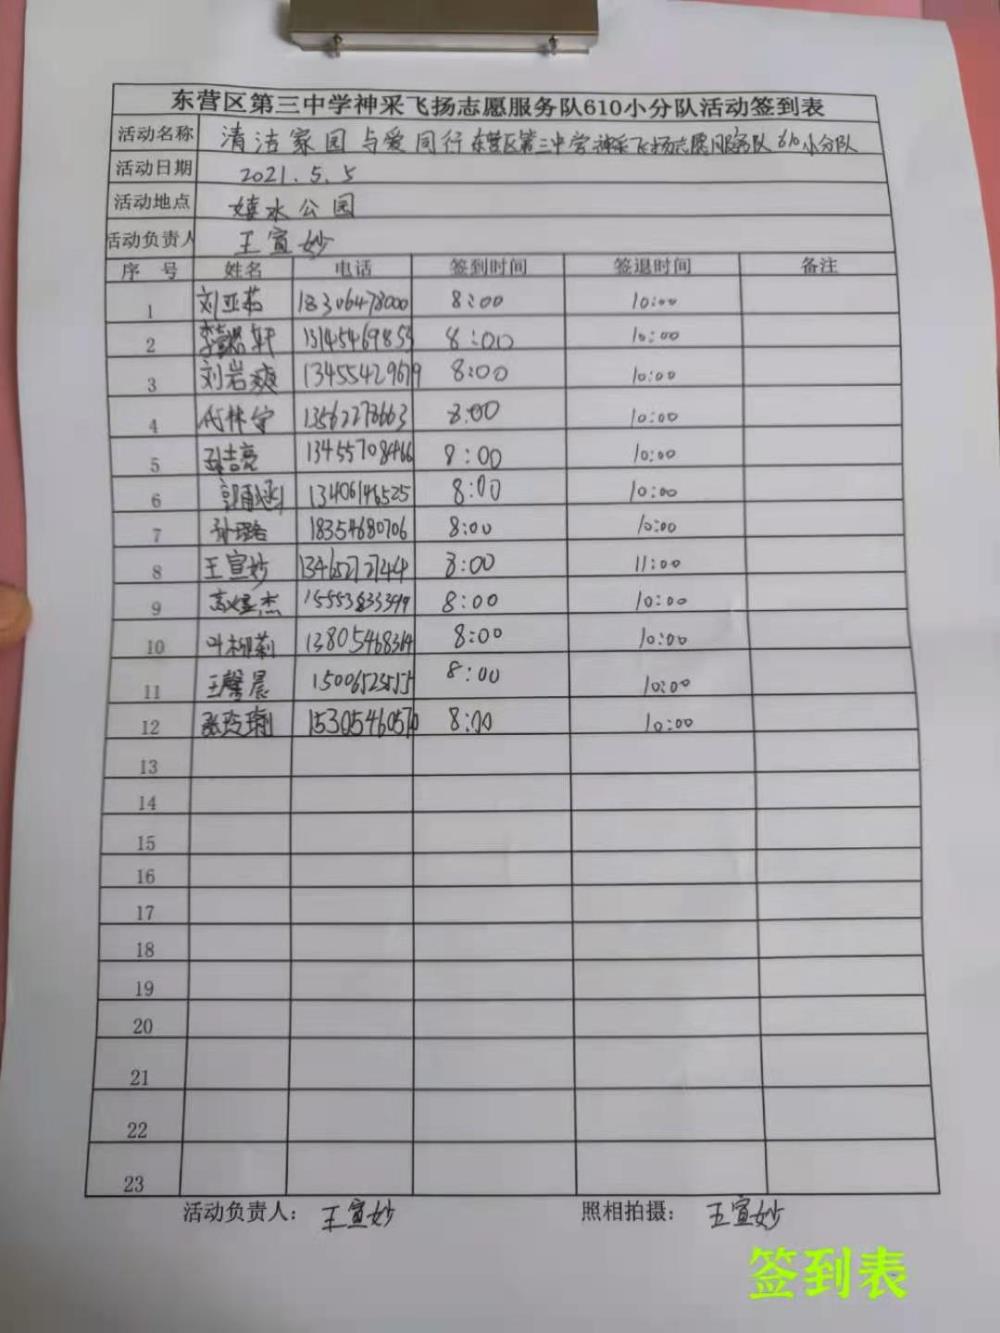 东营区第三中学神采飞扬志愿服务队610小分队活动签到表
活动名称 清洁家园与爱同行东营区第三中学神采飞扬志愿服务队610小分队
活动日期 2021.5.5
活动地点 嬉水公园
活动负责人 王宣妙
序 号 姓名 电话 签到时间 签退时间 备注
1 刘亚茹 18306478000 8:00 10:00
2 13145469853 8:00 10:00
3 刘岩爽 13455429679 8:00 10:00
4 代林宁 13562278663 8:00 10:00
5 孙吉亮 13455708466 8:00 10:00
6 13406146525 8:00 10:00
7 孙璐 18354680706 8:00 10:00
8 王宣妙 13465272744 8:00 11:00
9 8:00 10:00
10 叶柳莉 8:00 10:00
11 王馨晨 8:00 10:00
12 8:00 10:00
13
14
15
16
17
18
19
20
21
22
23
活动负责人: 王宣妙 照相拍摄: 王宣妙
签到表